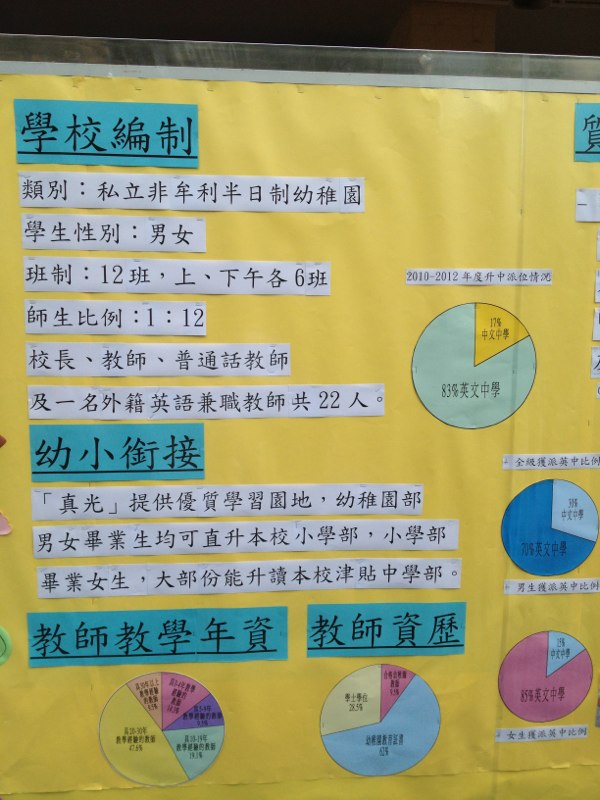 學校編制
類別：私立非牟利半日制幼稚園
學生性別：男女
班制：12班，上、下午各6班
師生比例：1：12
校長、教師、普通話教師
及一名外籍英語兼職教師共22人。
幼小銜接
「真光」提供優質學習園地，幼稚園部
男女畢業生均可直升本校小學部，小學部
畢業女生，大部份能升讀本校津貼中學部。
教師教學年資
具10-20年
教學經驗的教師
47.6%
具10-19年
教學經驗的教師
19.1%
教師資歷
學士學位
28.5%
幼稚園教育證書
62%
9.5%
2010-2012年度升中派位情況
17%
中文中學
83%英文中學
全級獲派英中比例
30%
中文中學
70%英文中學
男生獲派英中比例
15%
中文中學
85%英文中學
女生獲派英中比例
質